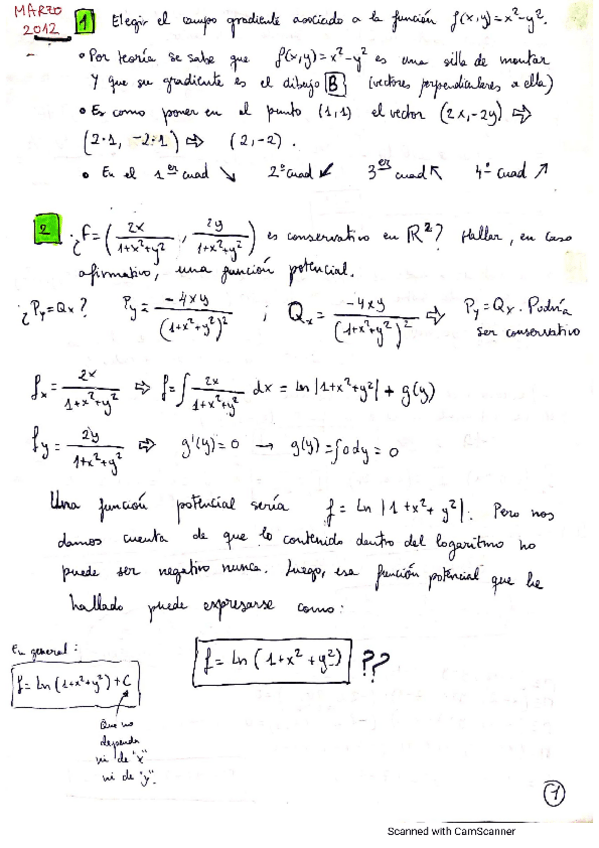 MARZO
2012
1 Elegir el campo gradiente asociado a la función f(x,y)=x²-y².
• Por teoría se sabe que f(x,y)=x²-y² es una silla de montar
Y que su gradiente es el dibujo B (vectores perpendiculares a ella)
• Es como poner en el punto (1,1) el vector (2x,-2y) ⇨
(2·1, -2·1) ⇨ (2,-2).
• En el 1er cuad ↘ 2º cuad ↙ 3er cuad ↖ 4º cuad ↗
2 ¿F=(2x/(1+x²+y²), 2y/(1+x²+y²)) es conservativo en ℝ²? Hallar, en caso
afirmativo, una función potencial.
¿Py=Qx? Py=-4xy/(1+x²+y²)² ; Qx=-4xy/(1+x²+y²)² ⇨ Py=Qx. Podría
ser conservativo
fx=2x/(1+x²+y²) ⇨ f=∫2x/(1+x²+y²) dx = ln|1+x²+y²| + g(y)
fy=2y/(1+x²+y²) ⇨ g'(y)=0 → g(y)=∫0dy=0
Una función potencial sería f=Ln|1+x²+y²|. Pero nos
damos cuenta de que lo contenido dentro del logaritmo no
puede ser negativo nunca. Luego, esa función potencial que he
hallado puede expresarse como:
En general:
f=Ln(1+x²+y²) ??
f=Ln(1+x²+y²)+C
Que no
dependa
ni de "x"
ni de "y".
1
Scanned with CamScanner